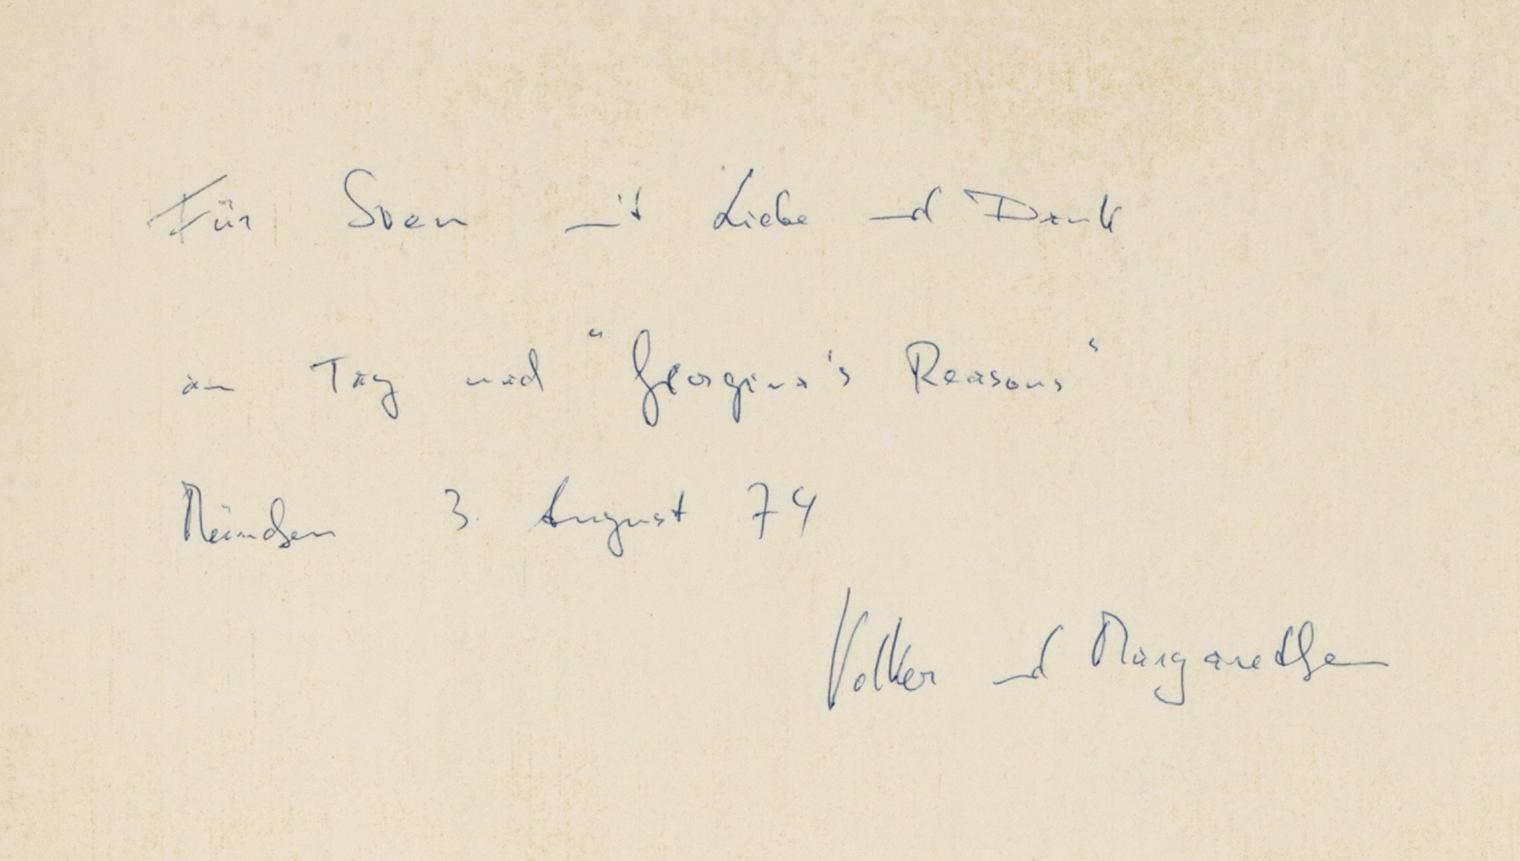 Für Sven mit Liebe und Dank
am Tag nach "Georgina's Reasons"
München 3. August 74
Volker und Margarethe